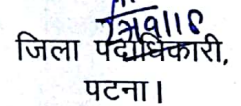 जिला पदाधिकारी,
पटना।